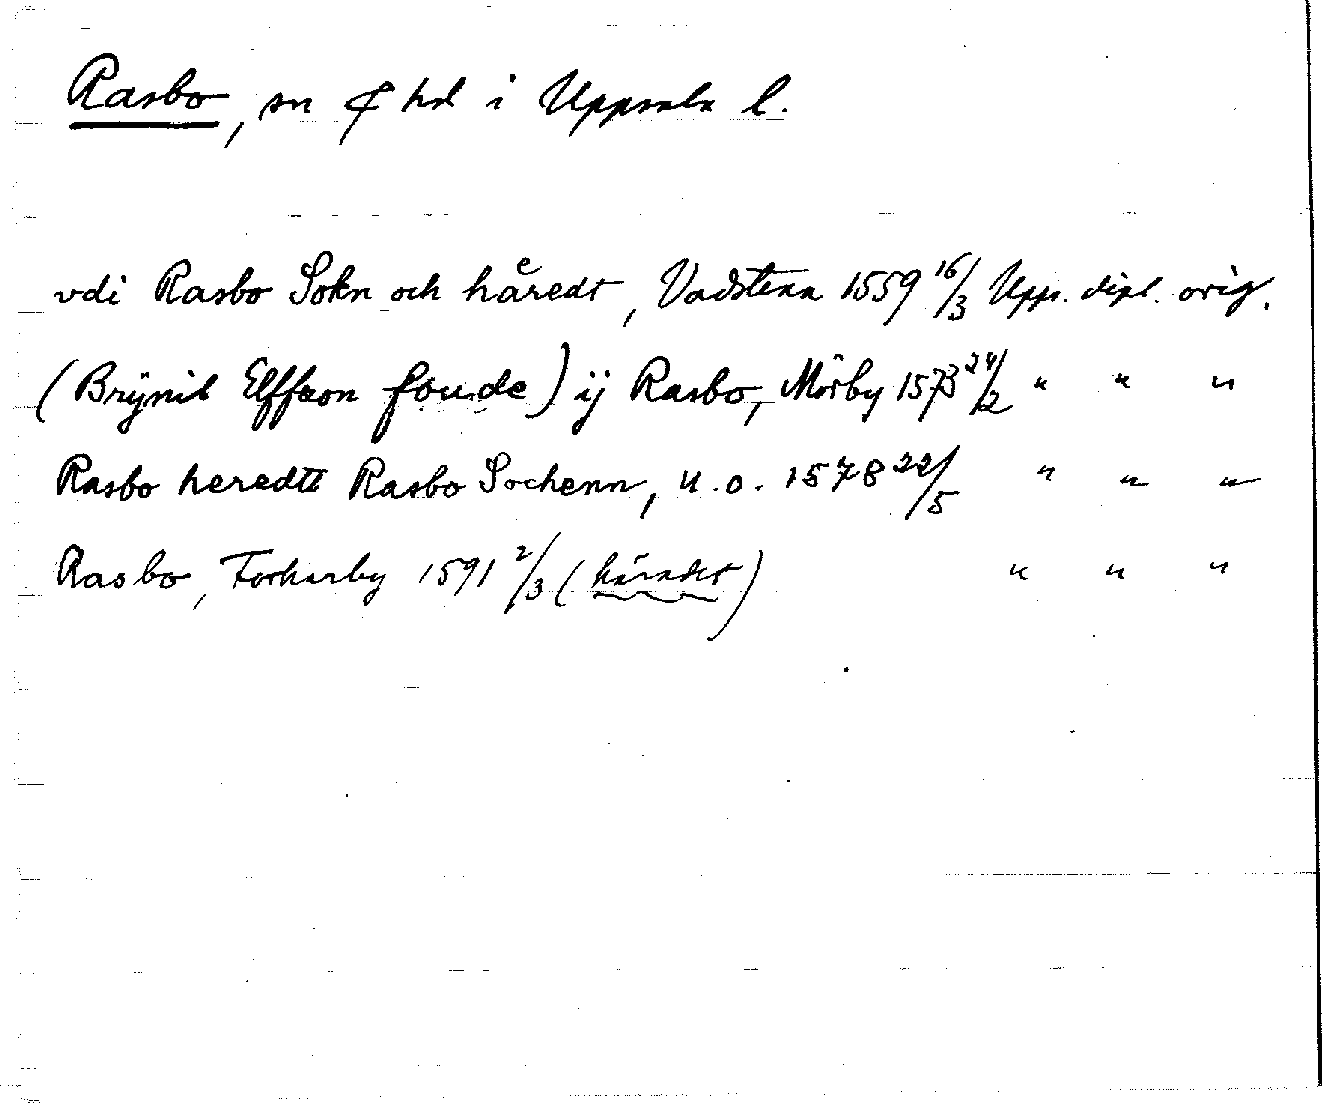 Rasbo, sn & hd i Uppsala l.
vdi Rasbo Sokn och håredt, Vadstena 1559 16/3 Upps. dipl. orig.
(Brÿnil Elffson foude) ij Rasbo, Mörby 1573 24/2 " " "
Rasbo heredtt Rasbo Sochenn, u.o. 1578 22/5 " " "
Rasbo, Torkarby 1591 2/3 (häradet) " " "